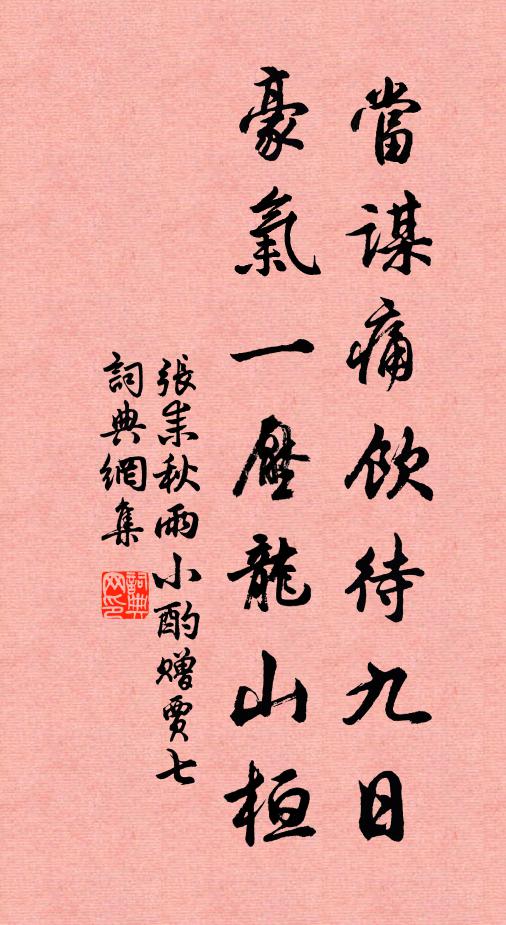 當謀痛飲待九日
豪氣一壓龍山桓
張耒秋雨小酌贈賈七
詞典網集
詞典网印